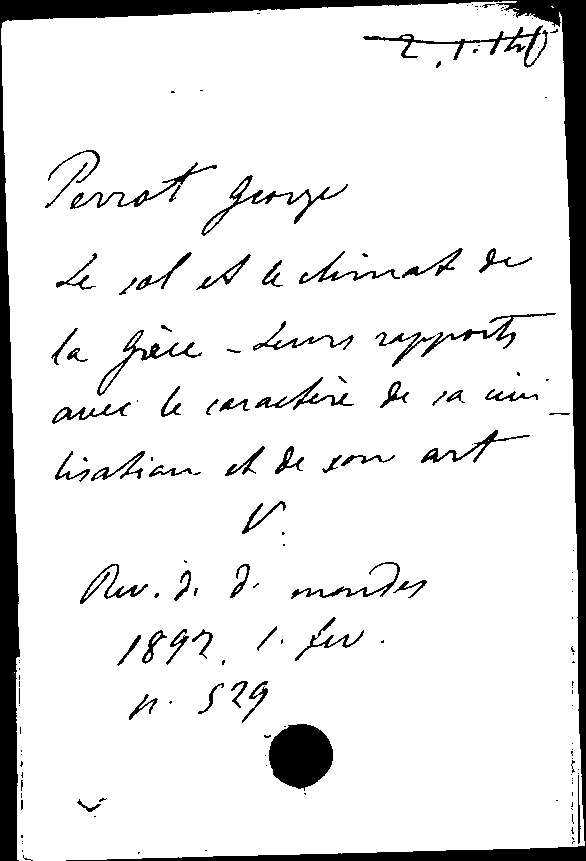 2.1.140
Perrot George
Le sol et le climat de
la Grèce - Leurs rapports
avec le caractère de sa civi-
lisation et de son art
V.
Rev. d. d. mondes
1892. 1. fev.
n. 529